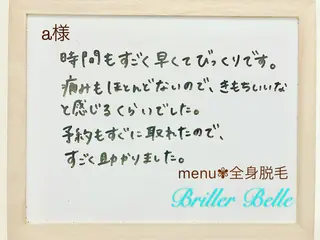 a様
時間もすごく早くてびっくりです。
痛みもほとんどないので、きもちいいな
と感じるくらいでした。
予約もすぐに取れたので、
すごく助かりました。
menu✾全身脱毛
Briller Belle